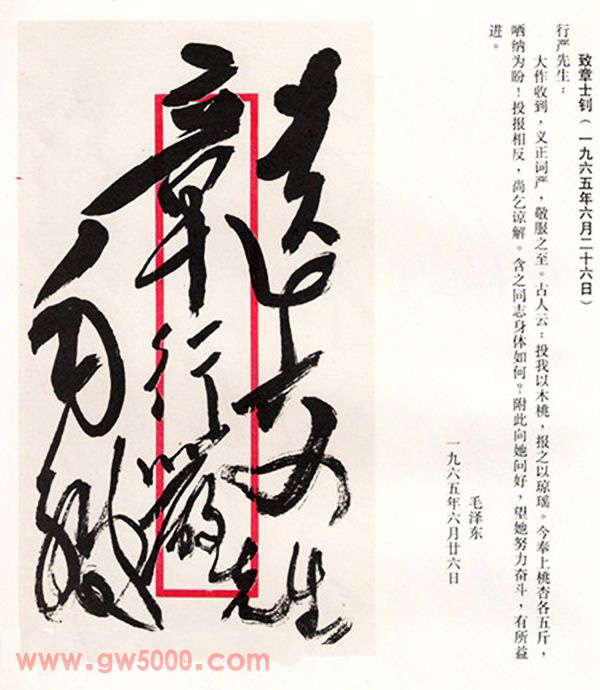 致章士钊(一九六五年六月二十六日)
行严先生:
大作收到,义正词严,敬服之至。古人云:投我以木桃,报之以琼瑶。今奉上桃杏各五斤,
哂纳为盼!投报相反,尚乞谅解。含之同志身体如何?附此向她问好,望她努力奋斗,有所益
进。
毛泽东
一九六五年六月廿六日
章行嚴
先生
www.gw5000.com